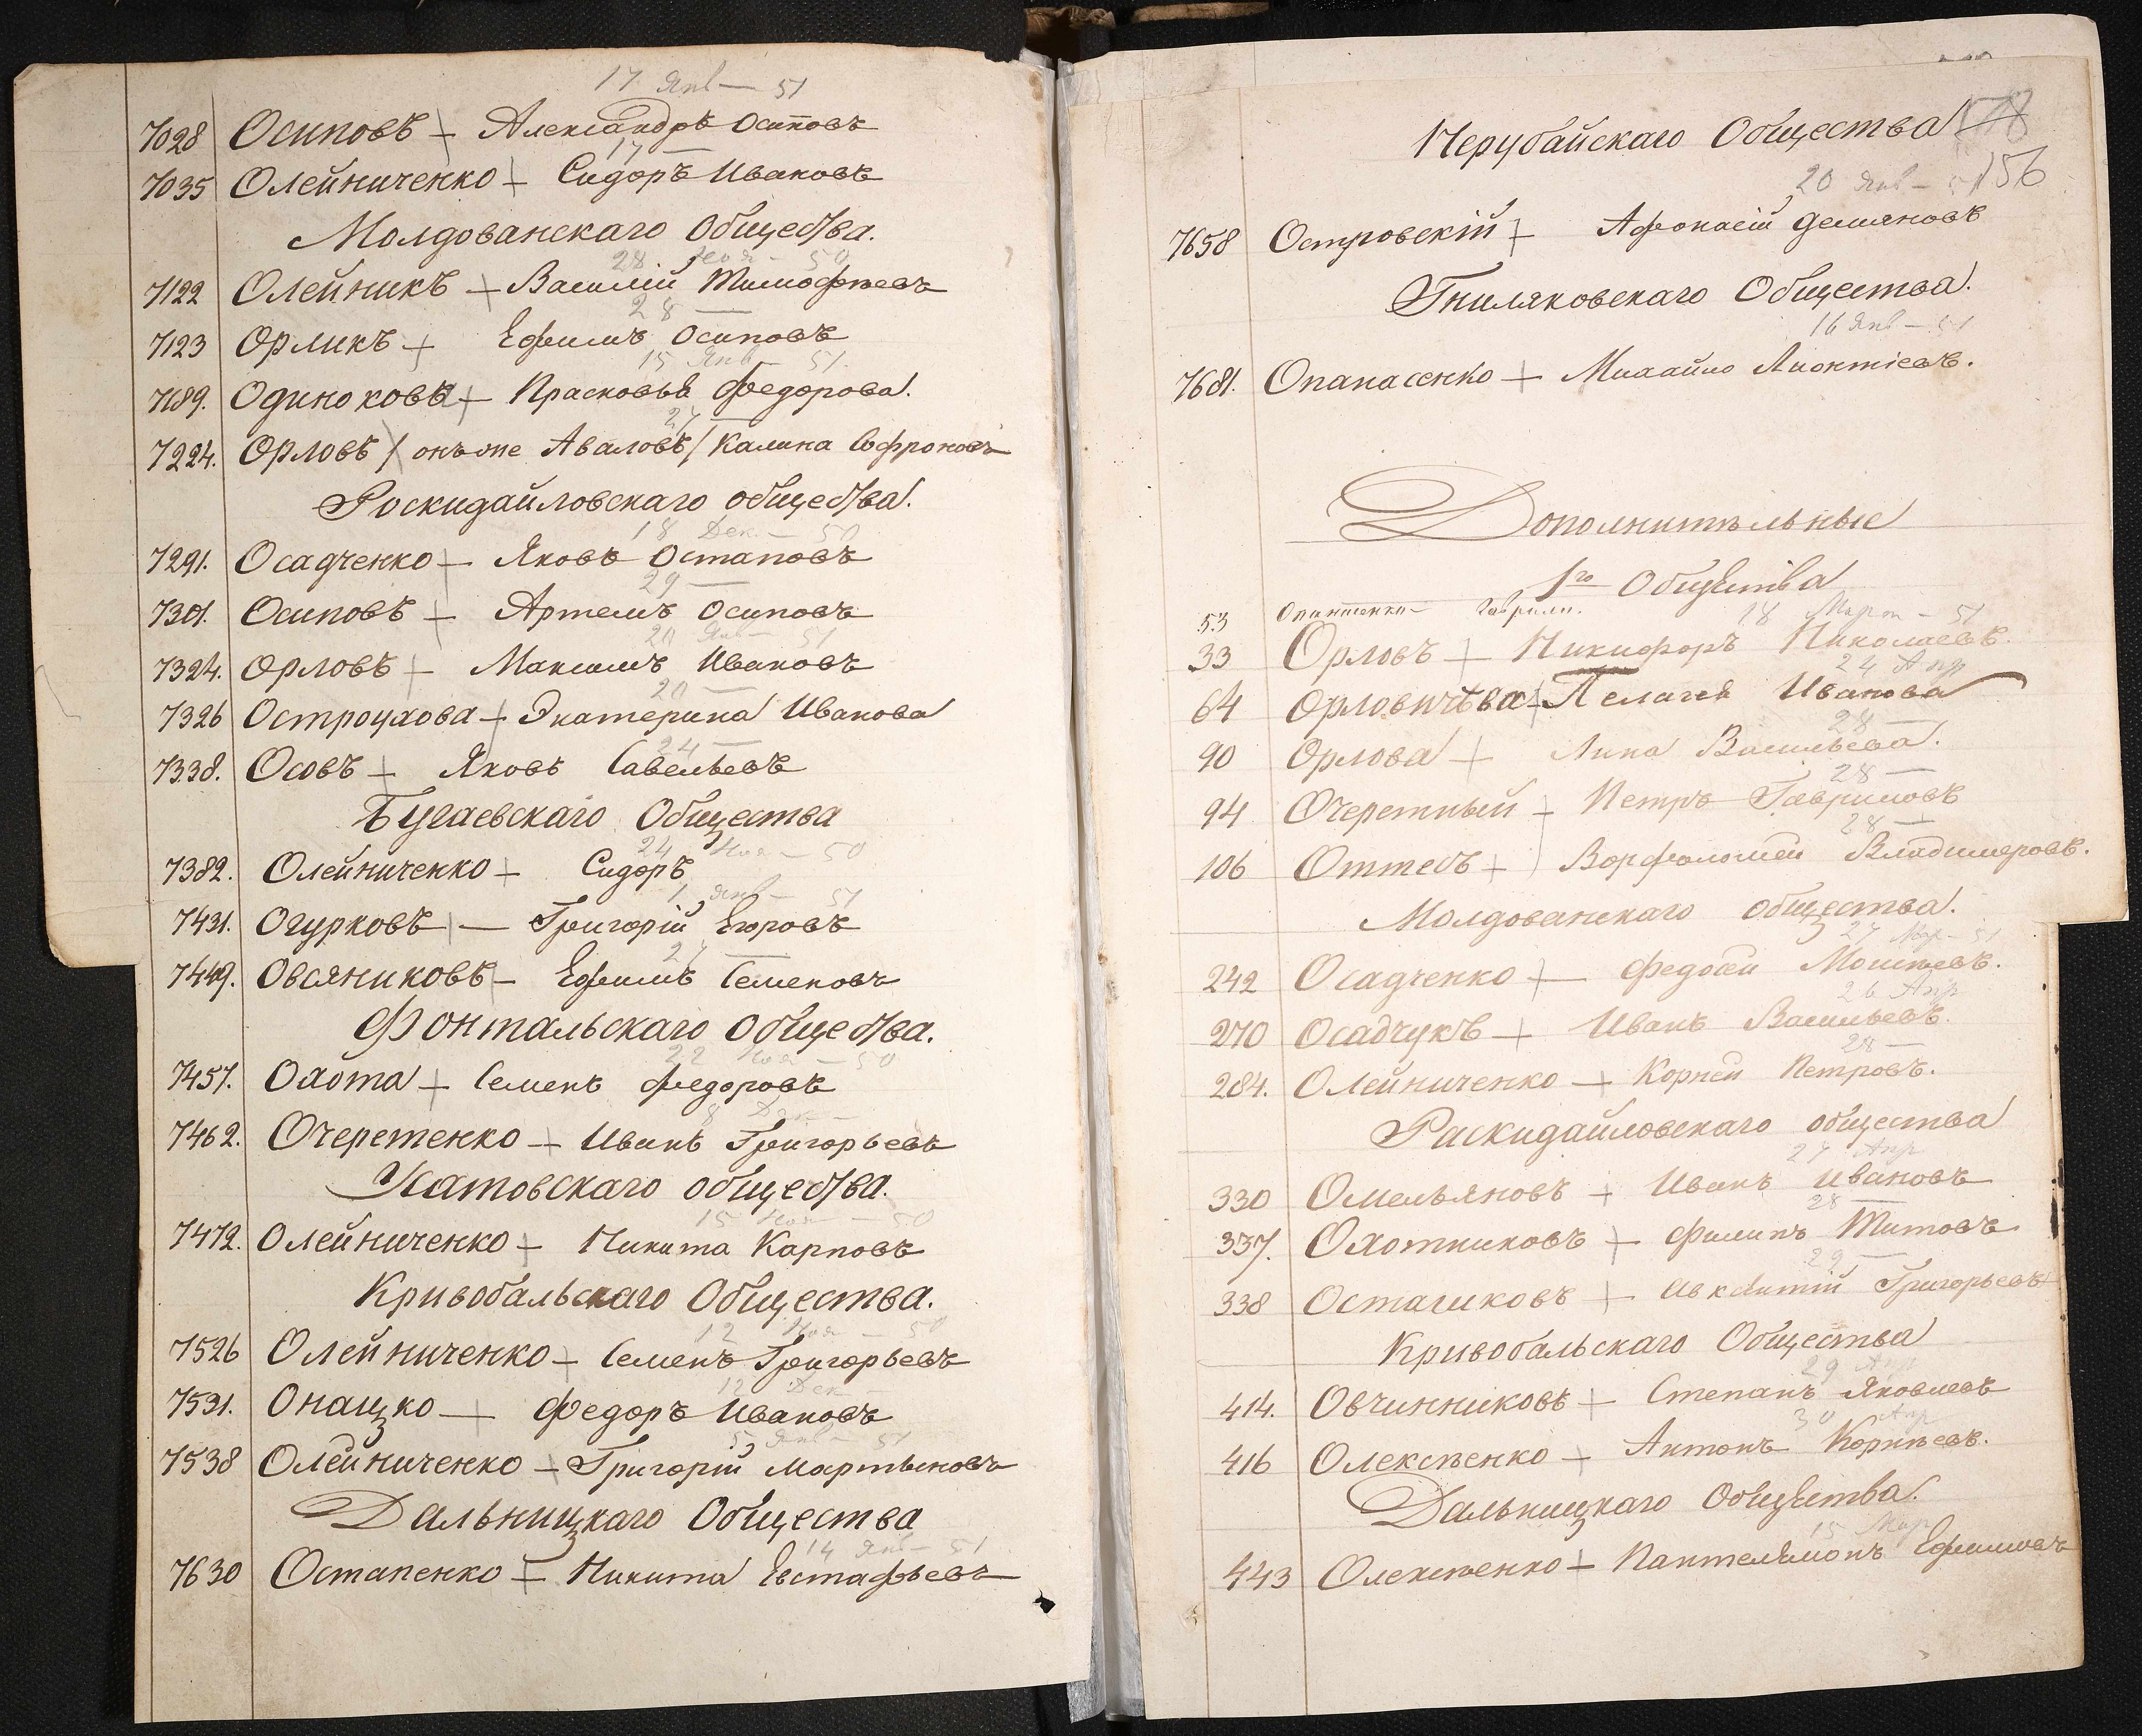 17 Янв — 51
7028 Осиповъ — Александръ Осиповъ
17 —
7035 Олейниченко — Сидоръ Ивановъ
Молдованскаго Общества.
28 Ноя — 50
7122 Олейникъ — Василій Тимофѣевъ
28 —
7123 Орликъ — Ефимъ Осиповъ
15 Янв — 51.
7189. Одинокова — Прасковья Федорова.
27 —
7224. Орловъ / онъ же Аваловъ / Калина Софроновъ
Роскидайловскаго общества.
18 Дек. — 50
7291. Осадченко — Яковъ Остаповъ
29 —
7301. Осиповъ — Артемъ Осиповъ
20 Янв — 51
7324. Орловъ — Максимъ Ивановъ
20 —
7326 Остроухова — Экатерина Иванова
24 —
7338. Осовъ — Яковъ Савельевъ
Бугаевскаго Общества
24 Ноя — 50
7382. Олейниченко — Сидоръ
1 Янв — 51
7431. Огурковъ — Григорій Егоровъ
27 —
7449. Овсяниковъ — Ефимъ Семеновъ
Фонтальскаго общества.
22 Ноя — 50
7457. Охота — Семенъ Федоровъ
8 Дек —
7462. Очеретенко — Иванъ Григорьевъ
Усатовскаго общества.
15 Ноя — 50
7472. Олейниченко — Никита Карповъ
Кривобальскаго Общества.
12 Ноя — 50
7526 Олейниченко — Семенъ Григорьевъ
12 Дек —
7531. Онацко — Федоръ Ивановъ
5 Янв — 51
7538 Олейниченко — Григорій Мартыновъ
Дальницкаго Общества
14 Янв — 51
7630 Остапенко — Никита Евстафьевъ
Нерубайскаго Общества
156
20 Янв — 51
7658 Островскій — Афонасій Демяновъ
Гниляковскаго Общества.
16 Янв — 51
7681. Опанасенко — Михайло Лионтіевъ.
Дополнительные
1го Общества
53 Гаврили.
18 Март — 51
33 Орловъ — Никифоръ Николаевъ.
24 Апр
64 — Пелагея Иванова
28 —
90 Орлова — Анна Васильева.
28 —
94 Очеретный — Петръ Гавриловъ
28 —
106 Оттевъ — Ворфоломей Владимеровъ.
Молдованскаго общества.
27 Мар — 51
242 Осадченко — Федосей Моисѣевъ.
26 Апр
270 Осадчукъ — Иванъ Васильевъ.
28 —
284. Олейниченко — Корней Петровъ.
Раскидайловскаго общества
27 Апр
330 Омельяновъ — Иванъ Ивановъ
28 —
337. Охотниковъ — Филипъ Титовъ
29 —
338 Григорьевъ
Кривобальскаго Общества
29 Апр
414. Овчинниковъ — Степанъ Яковлевъ
30 Апр
416 Олексѣенко — Антонъ Корнѣевъ.
Дальницкаго Общества.
15 Мар
443 Олексѣенко — Пантелямонъ Ефимовъ